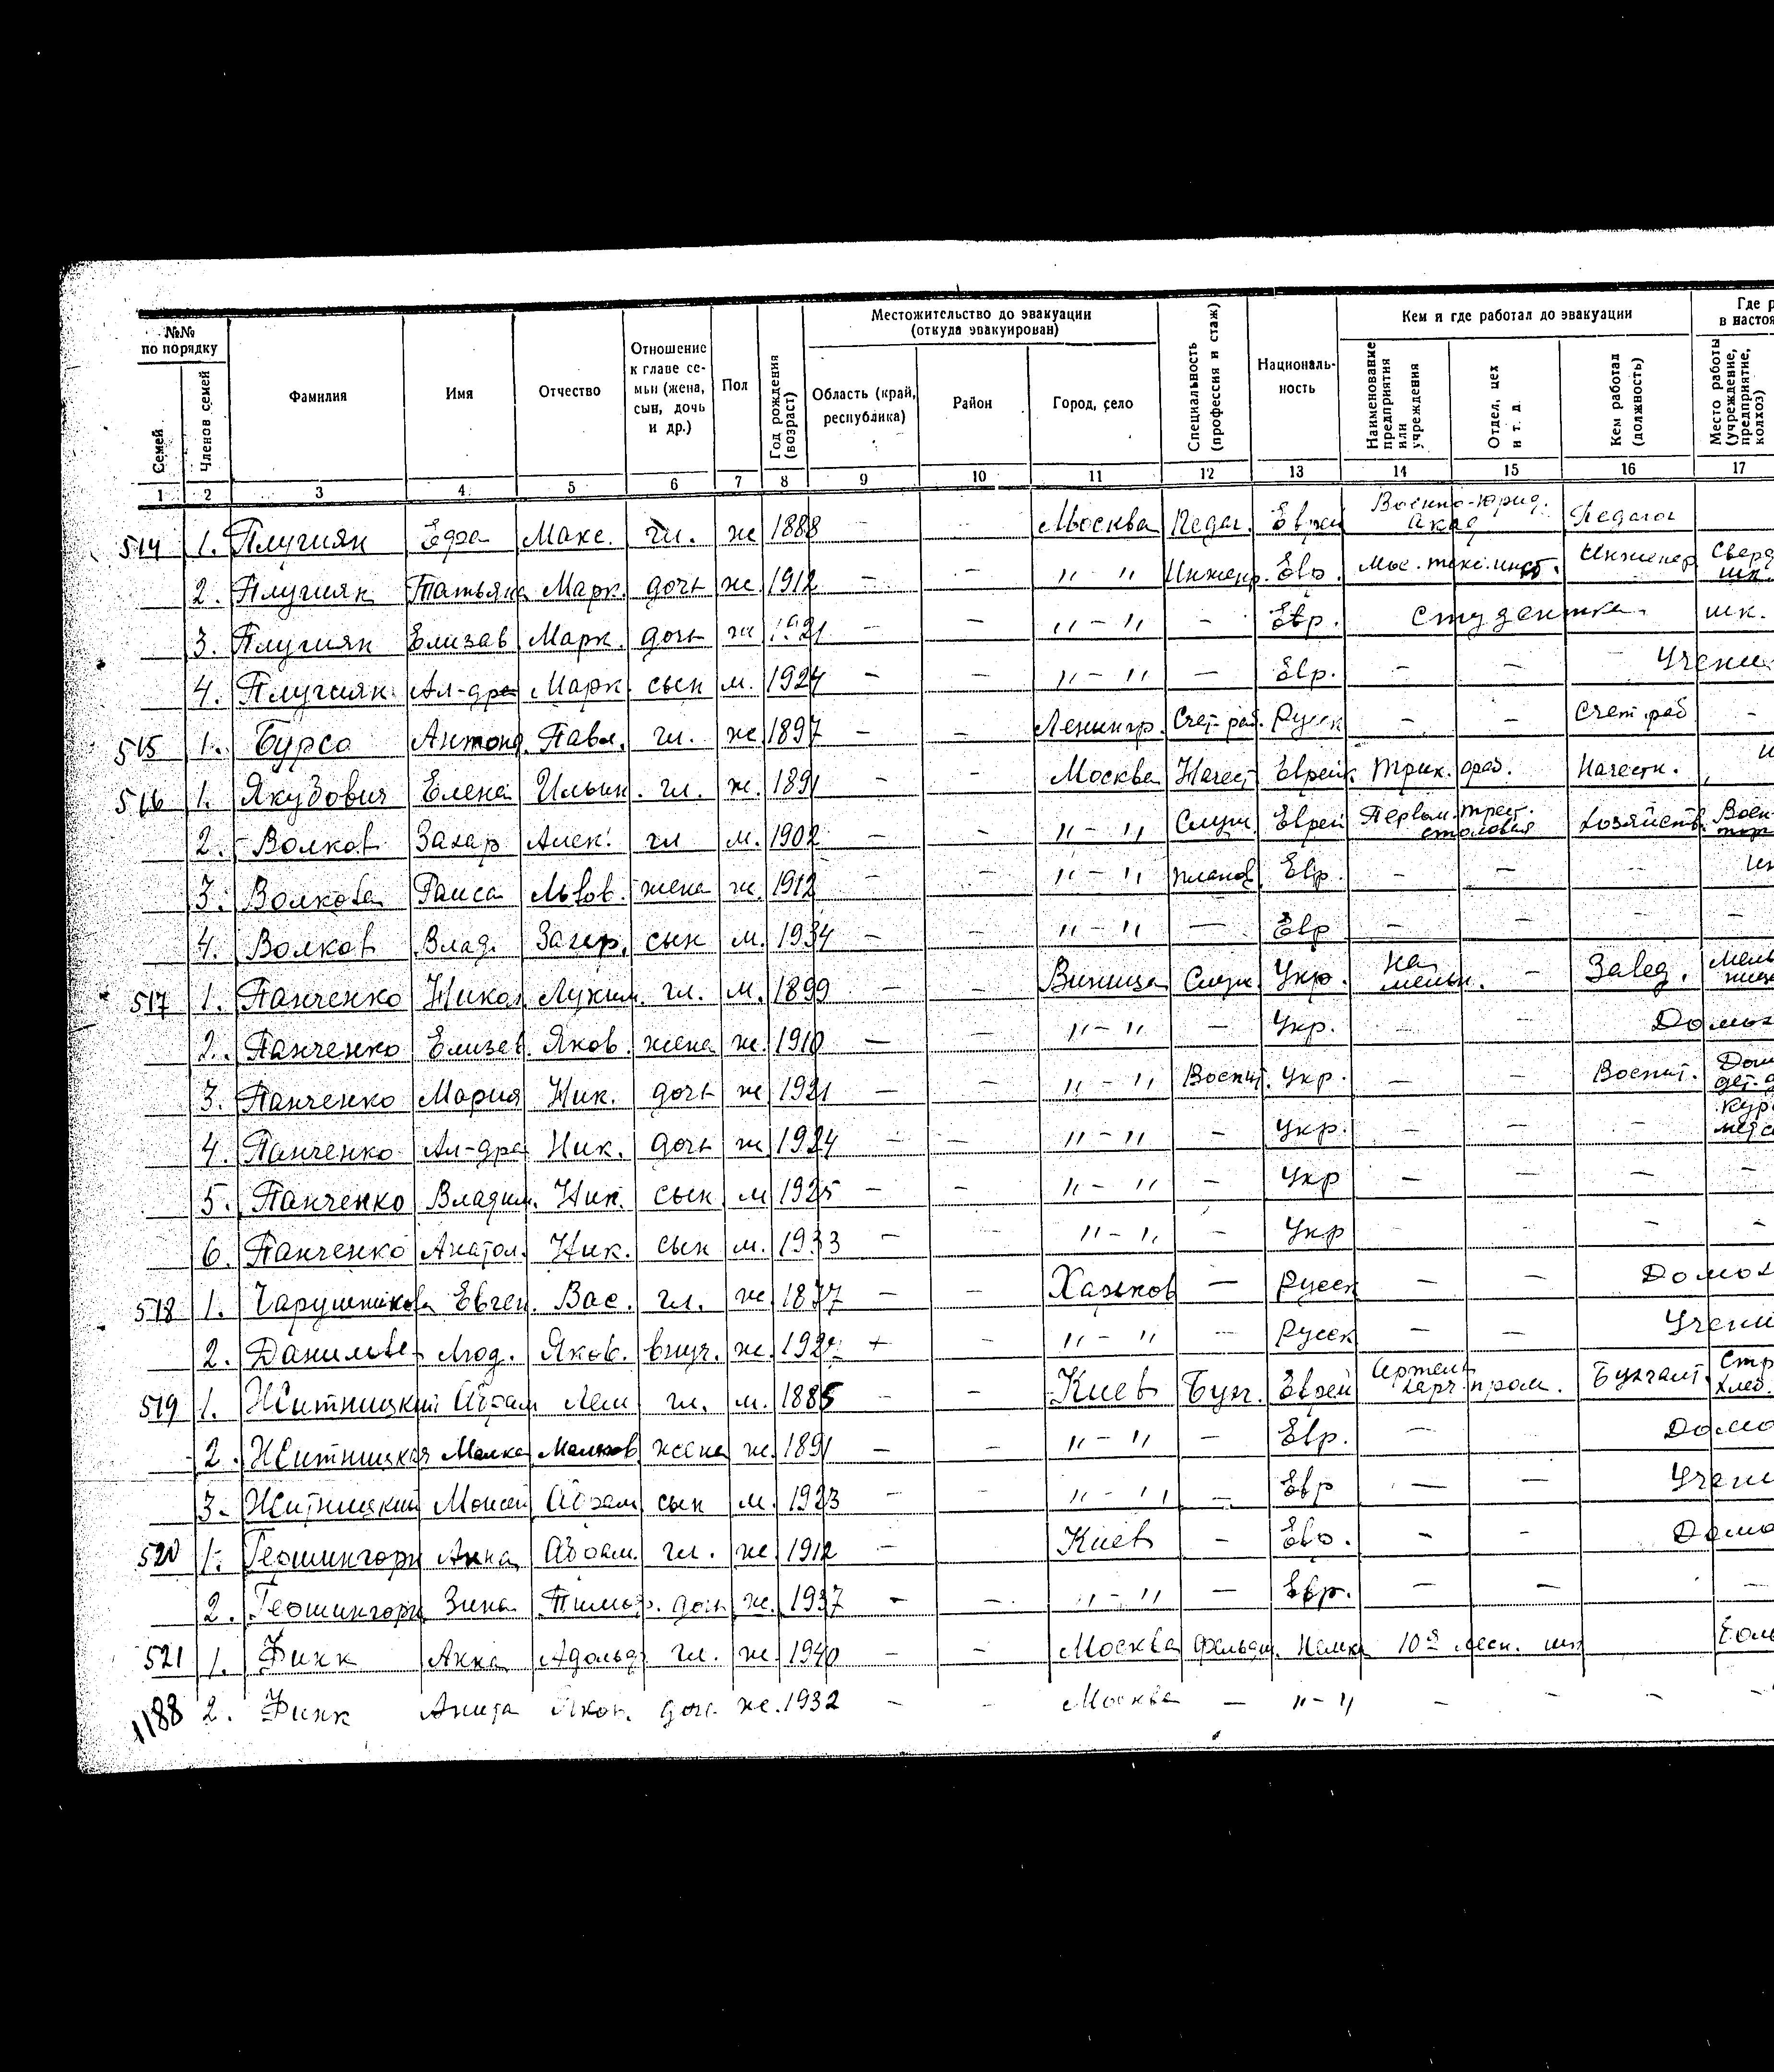 №№ по порядку
Семей
Членов семей
Фамилия
Имя
Отчество
Отношение к главе семьи (жена, сын, дочь и др.)
Пол
Год рождения (возраст)
Местожительство до эвакуации (откуда эвакуирован)
Область (край, республика)
Район
Город, село
Специальность (профессия и стаж)
Националь-ность
Кем и где работал до эвакуации
Наименование предприятия или учреждения
Отдел, цех и т. д.
Кем работал (должность)
Где р
в настоя
Место работы (учреждение, предприятие, колхоз)
1 2 3 4 5 6 7 8 9 10 11 12 13 14 15 16 17
514 1. Плугиян Макс. гл. ж 1888 – – Москва Педаг. Еврей Военно-юрид. Акад Педагог
2. Плугиян Татьяна Марк. дочь ж. 1912 – – "–" Инженер. Евр. Мос. текс. инст. Инженер Сверд шк.
3. Плугиян Елизав Марк. дочь ж 1921 – – "–" – Евр. Студентка. шк.
4. Плугиян Ал-др Марк. сын м. 1924 – – "–" – Евр. – – Учени
515 1. Бурсо Антонд. Павл. гл. ж 1897 – – Ленингр. Счет. раб. Русск – – Счет. раб –
516 1. Якубович Елена Ильин. гл. ж. 1891 – – Москва Еврейк Трик.
2. Волков Захар Алек. гл м. 1902 – – "–" Служ. Еврей Первом. трест. столовая хозяйств. Воен-тор
3. Волкова Раиса Львов. жена ж. 1912 – – "–" планов. Евр. – – –
4. Волков Влад. Захар. сын м. 1934 – – "–" – Евр – – – –
517 1. Панченко Никол Лукич. гл. м. 1899 – – Виница Служ Укр. На мельн. – Завед. Мель-ниц
2. Панченко Елизав. Яков. жена ж. 1910 – – "–" – Укр. – – Домох
3. Панченко Мария Ник. дочь ж 1921 – – "–" Воспит. Укр. – – Воспит. Дом дет. д
4. Панченко Ал-дра Ник. дочь ж 1924 – – "–" – Укр. – – – Кур мед с
5. Панченко Владим. Ник. сын м 1925 – – "–" – Укр – – – –
6. Панченко Анатол. Ник. сын м. 1933 – – "–" – Укр – – –
518 1. Чарушникова Евген. Вас. гл. ж 1877 – – Харьков – Русск – – Домох
2. Люд. Яков. внуч. ж. + – "–" – Русск – – Учени
519 1. Житницкий Абрам Лейн гл. м. 1885 – – Киев Бухг. Еврей Артель харч. пром. Бухгалт. Стр хлеб.
2. Житницкая Малка жена ж. 1891 – – "–" – Евр. – Домо
3. Житницкий Моисей Абрам сын м. 1923 – – "–" – Евр – – Учени
520 1. Гершингорн Анна Абрам. гл. ж 1912 – Киев – Евр. – – Домо
2. Гершингорн Зина Тимоф. дочь ж. 1937 – – "–" – Евр. – – –
521 1. Финк Анна Адольф. гл. ж. 1940 – – Москва Фельдш. Немка
1188 2. Финк Анита Яков. доч. ж. 1932 – – Москва – "–" – – – –